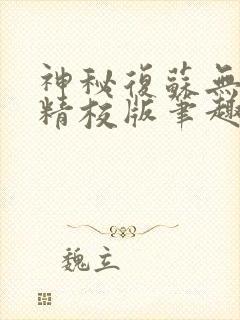 神秘復蘇無
精校版筆趣
魏立